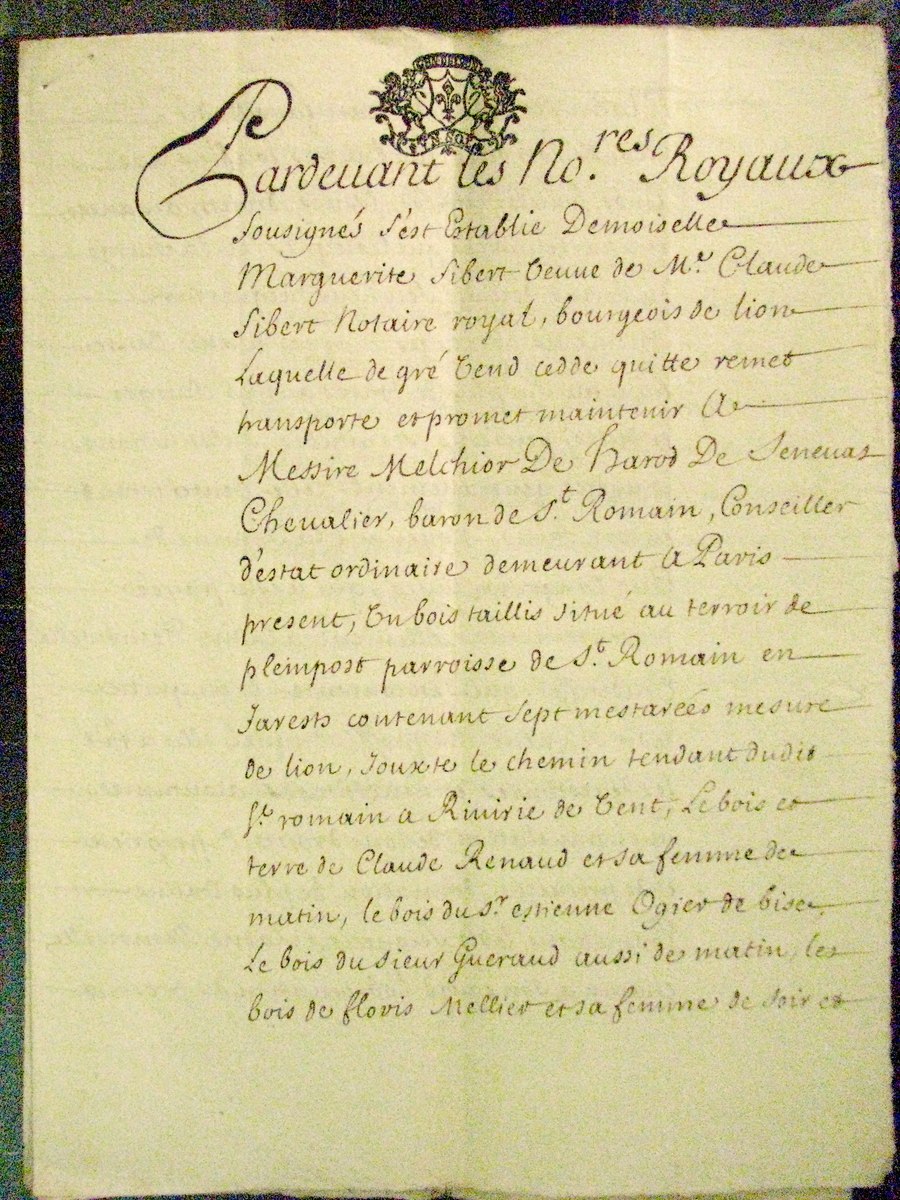 Pardevant les No.res Royaux
Sousignés s'est Establie Demoiselle
Marguerite Sibert Veuve de Mr. Claude
Sibert Notaire royal, bourgeois de lion
Laquelle de gré Vend cedde quitte remet
transporte et promet maintenir A
Messire Melchior De Harod De Senevas
Chevalier, baron de St. Romain, Conseiller
d'estat ordinaire demeurant a Paris
present, Un bois taillis situé au terroir de
pleinpost parroisse de St. Romain en
Jarests contenant sept mestarées mesure
de lion, Jouxte le chemin tendant dudit
St. romain a Rivirie de Vent, Le bois et
terre de Claude Renaud et sa femme de
matin, le bois du Sr. estienne Ogier de bise,
Le bois du sieur Gueraud aussi de matin, les
bois de floris Mellier et sa femme de soir et